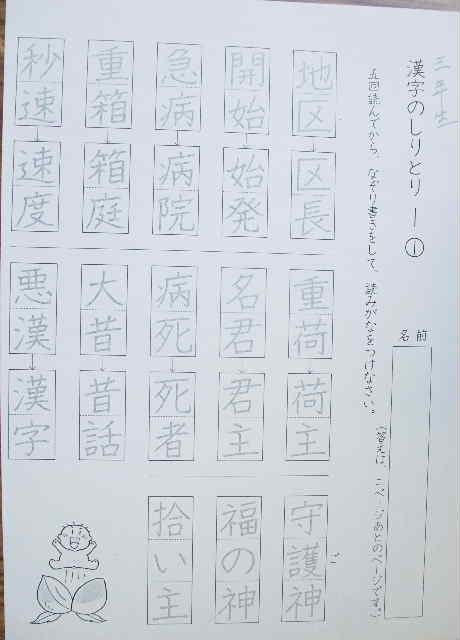 三年生
漢字のしりとり ー ①
名前
五回読んでから、なぞり書きをして、読みがなをつけなさい。(答えは、二ページあとのページです。)
地区
↓
区長
開始
↓
始発
急病
↓
病院
重箱
↓
箱庭
秒速
↓
速度
重荷
↓
荷主
名君
↓
君主
病死
↓
死者
大昔
↓
昔話
悪漢
↓
漢字
守護神
ご
福の神
拾い主